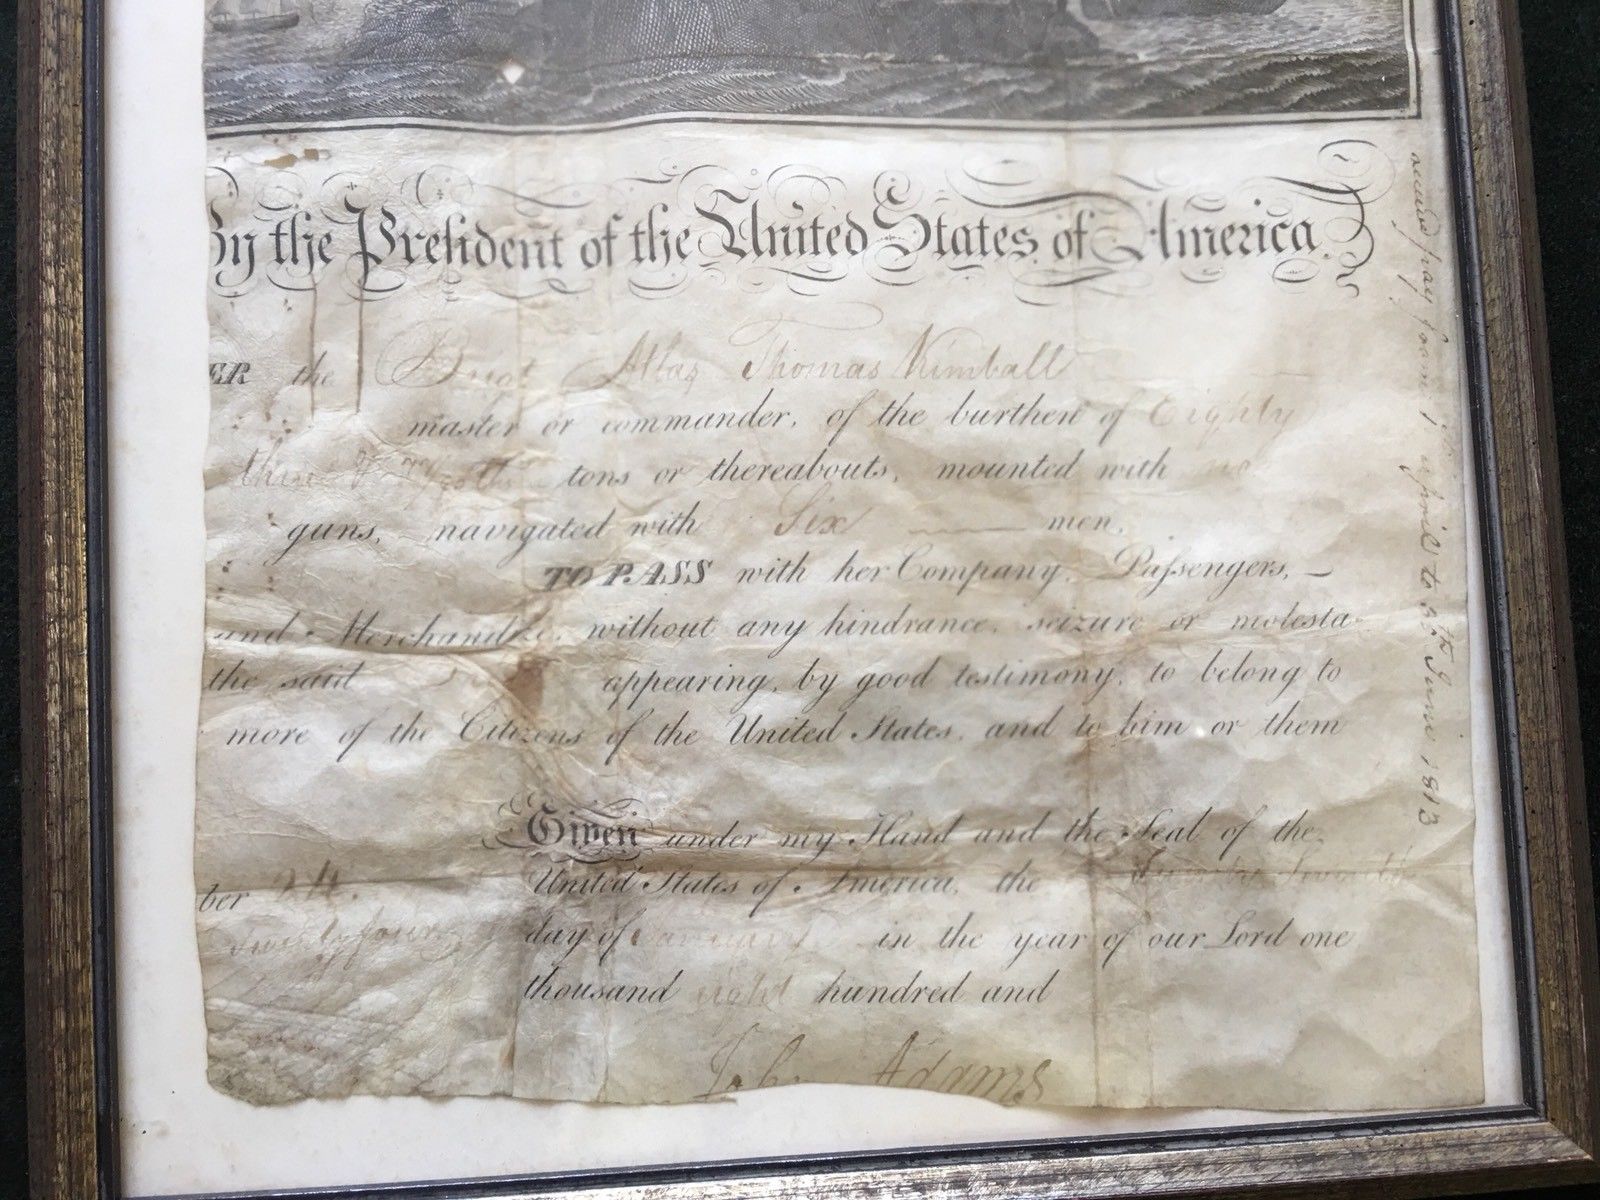 By the President of the United States of America.
ER the Brigt Atlas Thomas Kimball
master or commander, of the burthen of Eighty
tons or thereabouts, mounted with no
guns, navigated with Six men,
TO PASS with her Company, Passengers,
and Merchandize, without any hindrance, seizure or molesta
the said appearing, by good testimony, to belong to
more of the Citizens of the United States, and to him or them
Given under my Hand and the Seal of the
United States of America, the Twenty Seventh
ber 24.
Twenty four
day of January in the year of our Lord one
thousand eight hundred and
John Adams
pay from 1st april to 30th June 1813